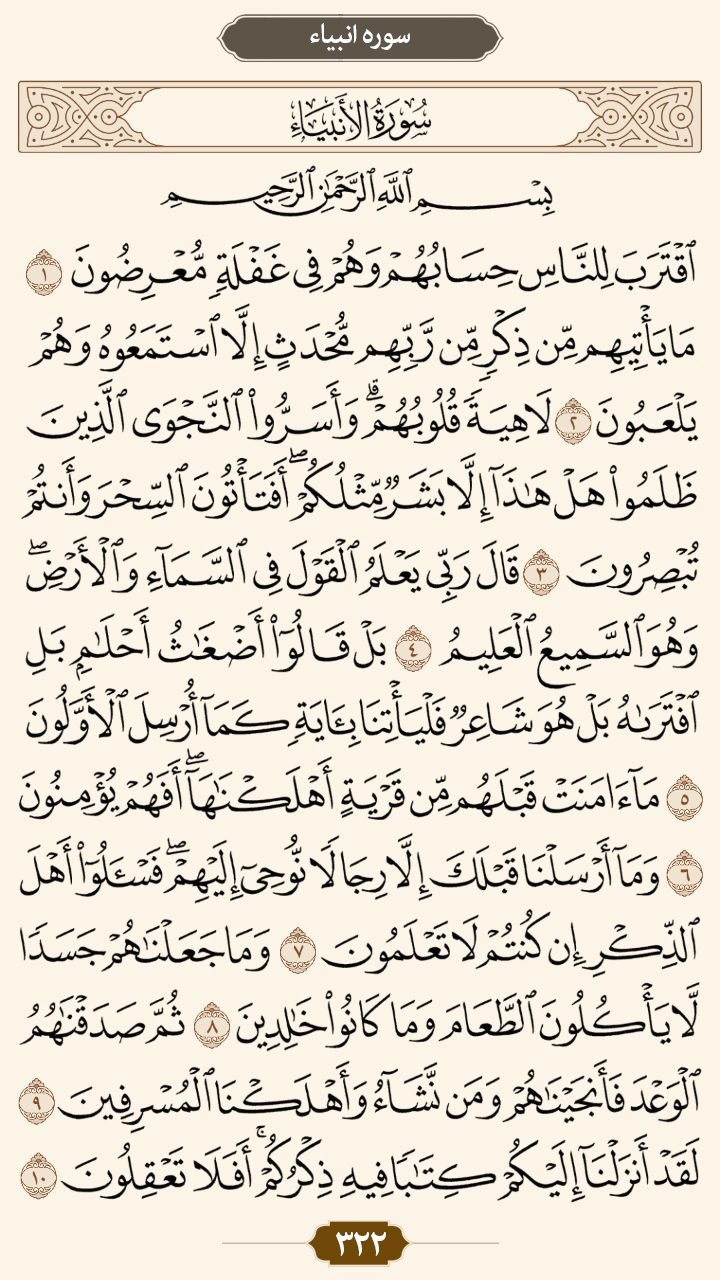 سوره انبیاء
سُورَةُ الأَنبِيَاءِ
بِسْمِ اللَّهِ الرَّحْمَٰنِ الرَّحِيمِ
ٱقْتَرَبَ لِلنَّاسِ حِسَابُهُمْ وَهُمْ فِى غَفْلَةٍ مُّعْرِضُونَ ١
مَا يَأْتِيهِم مِّن ذِكْرٍ مِّن رَّبِّهِم مُّحْدَثٍ إِلَّا ٱسْتَمَعُوهُ وَهُمْ
يَلْعَبُونَ ٢ لَاهِيَةً قُلُوبُهُمْ ۗ وَأَسَرُّوا۟ ٱلنَّجْوَى ٱلَّذِينَ
ظَلَمُوا۟ هَلْ هَٰذَآ إِلَّا بَشَرٌ مِّثْلُكُمْ ۖ أَفَتَأْتُونَ ٱلسِّحْرَ وَأَنتُمْ
تُبْصِرُونَ ٣ قَالَ رَبِّى يَعْلَمُ ٱلْقَوْلَ فِى ٱلسَّمَآءِ وَٱلْأَرْضِ ۖ
وَهُوَ ٱلسَّمِيعُ ٱلْعَلِيمُ ٤ بَلْ قَالُوٓا۟ أَضْغَٰثُ أَحْلَٰمٍۭ بَلِ
ٱفْتَرَىٰهُ بَلْ هُوَ شَاعِرٌ فَلْيَأْتِنَا بِـَٔايَةٍ كَمَآ أُرْسِلَ ٱلْأَوَّلُونَ
٥ مَآ ءَامَنَتْ قَبْلَهُم مِّن قَرْيَةٍ أَهْلَكْنَٰهَآ ۖ أَفَهُمْ يُؤْمِنُونَ
٦ وَمَآ أَرْسَلْنَا قَبْلَكَ إِلَّا رِجَالًا نُّوحِىٓ إِلَيْهِمْ ۖ فَسْـَٔلُوٓا۟ أَهْلَ
ٱلذِّكْرِ إِن كُنتُمْ لَا تَعْلَمُونَ ٧ وَمَا جَعَلْنَٰهُمْ جَسَدًا
لَّا يَأْكُلُونَ ٱلطَّعَامَ وَمَا كَانُوا۟ خَٰلِدِينَ ٨ ثُمَّ صَدَقْنَٰهُمُ
ٱلْوَعْدَ فَأَنجَيْنَٰهُمْ وَمَن نَّشَآءُ وَأَهْلَكْنَا ٱلْمُسْرِفِينَ ٩
لَقَدْ أَنزَلْنَآ إِلَيْكُمْ كِتَٰبًا فِيهِ ذِكْرُكُمْ ۚ أَفَلَا تَعْقِلُونَ ١٠
٣٢٢